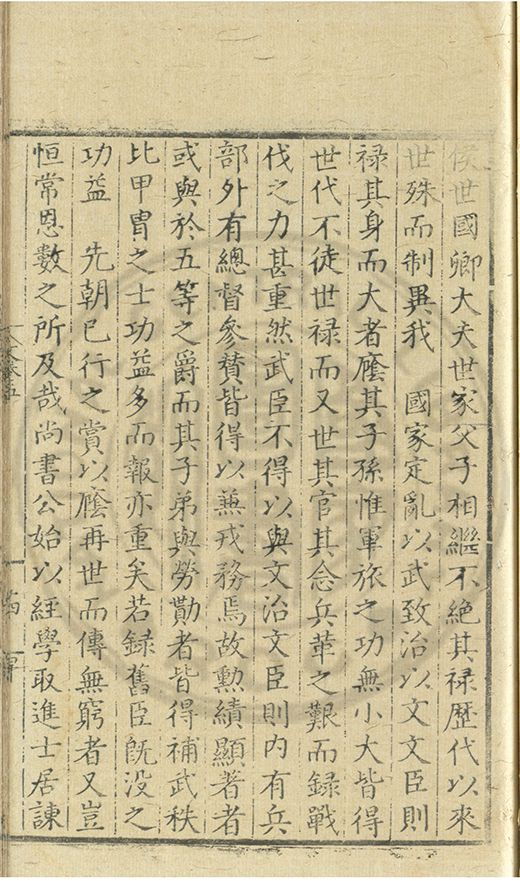 侯世國卿大夫世家父子相繼不絕其禄歷代以來
世殊而制異我　國家定亂以武致治以文文臣則
禄其身而大者廕其子孫惟軍旅之功無小大皆得
世代不徒世禄而又世其官其念兵革之艱而録戰
伐之力甚重然武臣不得以與文治文臣則内有兵
部外有總督參贊皆得以兼戎務焉故勳績顯著者
或與於五等之爵而其子弟與勞勩者皆得補武秩
比甲胄之士功益多而報亦重矣若録舊臣旣没之
功益　先朝已行之賞以廕再世而傳無窮者又豈
恒常恩數之所及哉尚書公始以經學取進士居諫